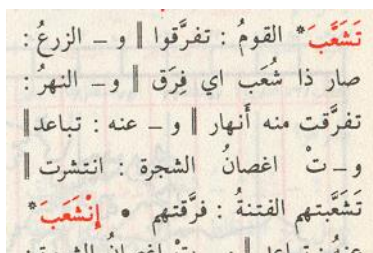 تَشَعَّبَ* القومُ : تفرَّقوا ‖ و – الزرعُ :
صار ذا شُعَب اي فِرَق ‖ و – النهرُ :
تفرَّقت منه أَنهار ‖ و – عنه : تباعد ‖
و – تْ اغصانُ الشجرة : انتشرت ‖
تَشَعَّبتهم الفتنةُ : فرَّقتهم • إِنْشَعَبَ*